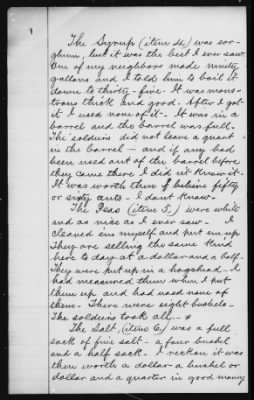 The Syrup (item 4,) was sor-
ghum, but it was the best I ever saw.
One of my neighbors made ninety
gallons and I told him to boil it
down to thirty-five. It was mons-
trous thick and good. After I got
it I used none of it. It was in a
barrel and the barrel was full.
The soldiers did not leave a quart
in the barrel - and if any had
been used out of the barrel before
they came there I did not know it.
It was worth then I believe fifty
or sixty cents - I dont know.
The Peas (item 5,) were white
and as nice as I ever saw. I
cleaned em myself and put em up.
They are selling the same kind
here to day at a dollar and a half.
They were put up in a hogshead - I
had measured them when I put
them up and had used none of
them. There were eight bushels.
The soldiers took all.
The Salt, (item 6,) was a full
sack of fine salt - a four bushel
and a half sack. I reckon it was
then worth a dollar - a bushel or
dollar and a quarter in good money